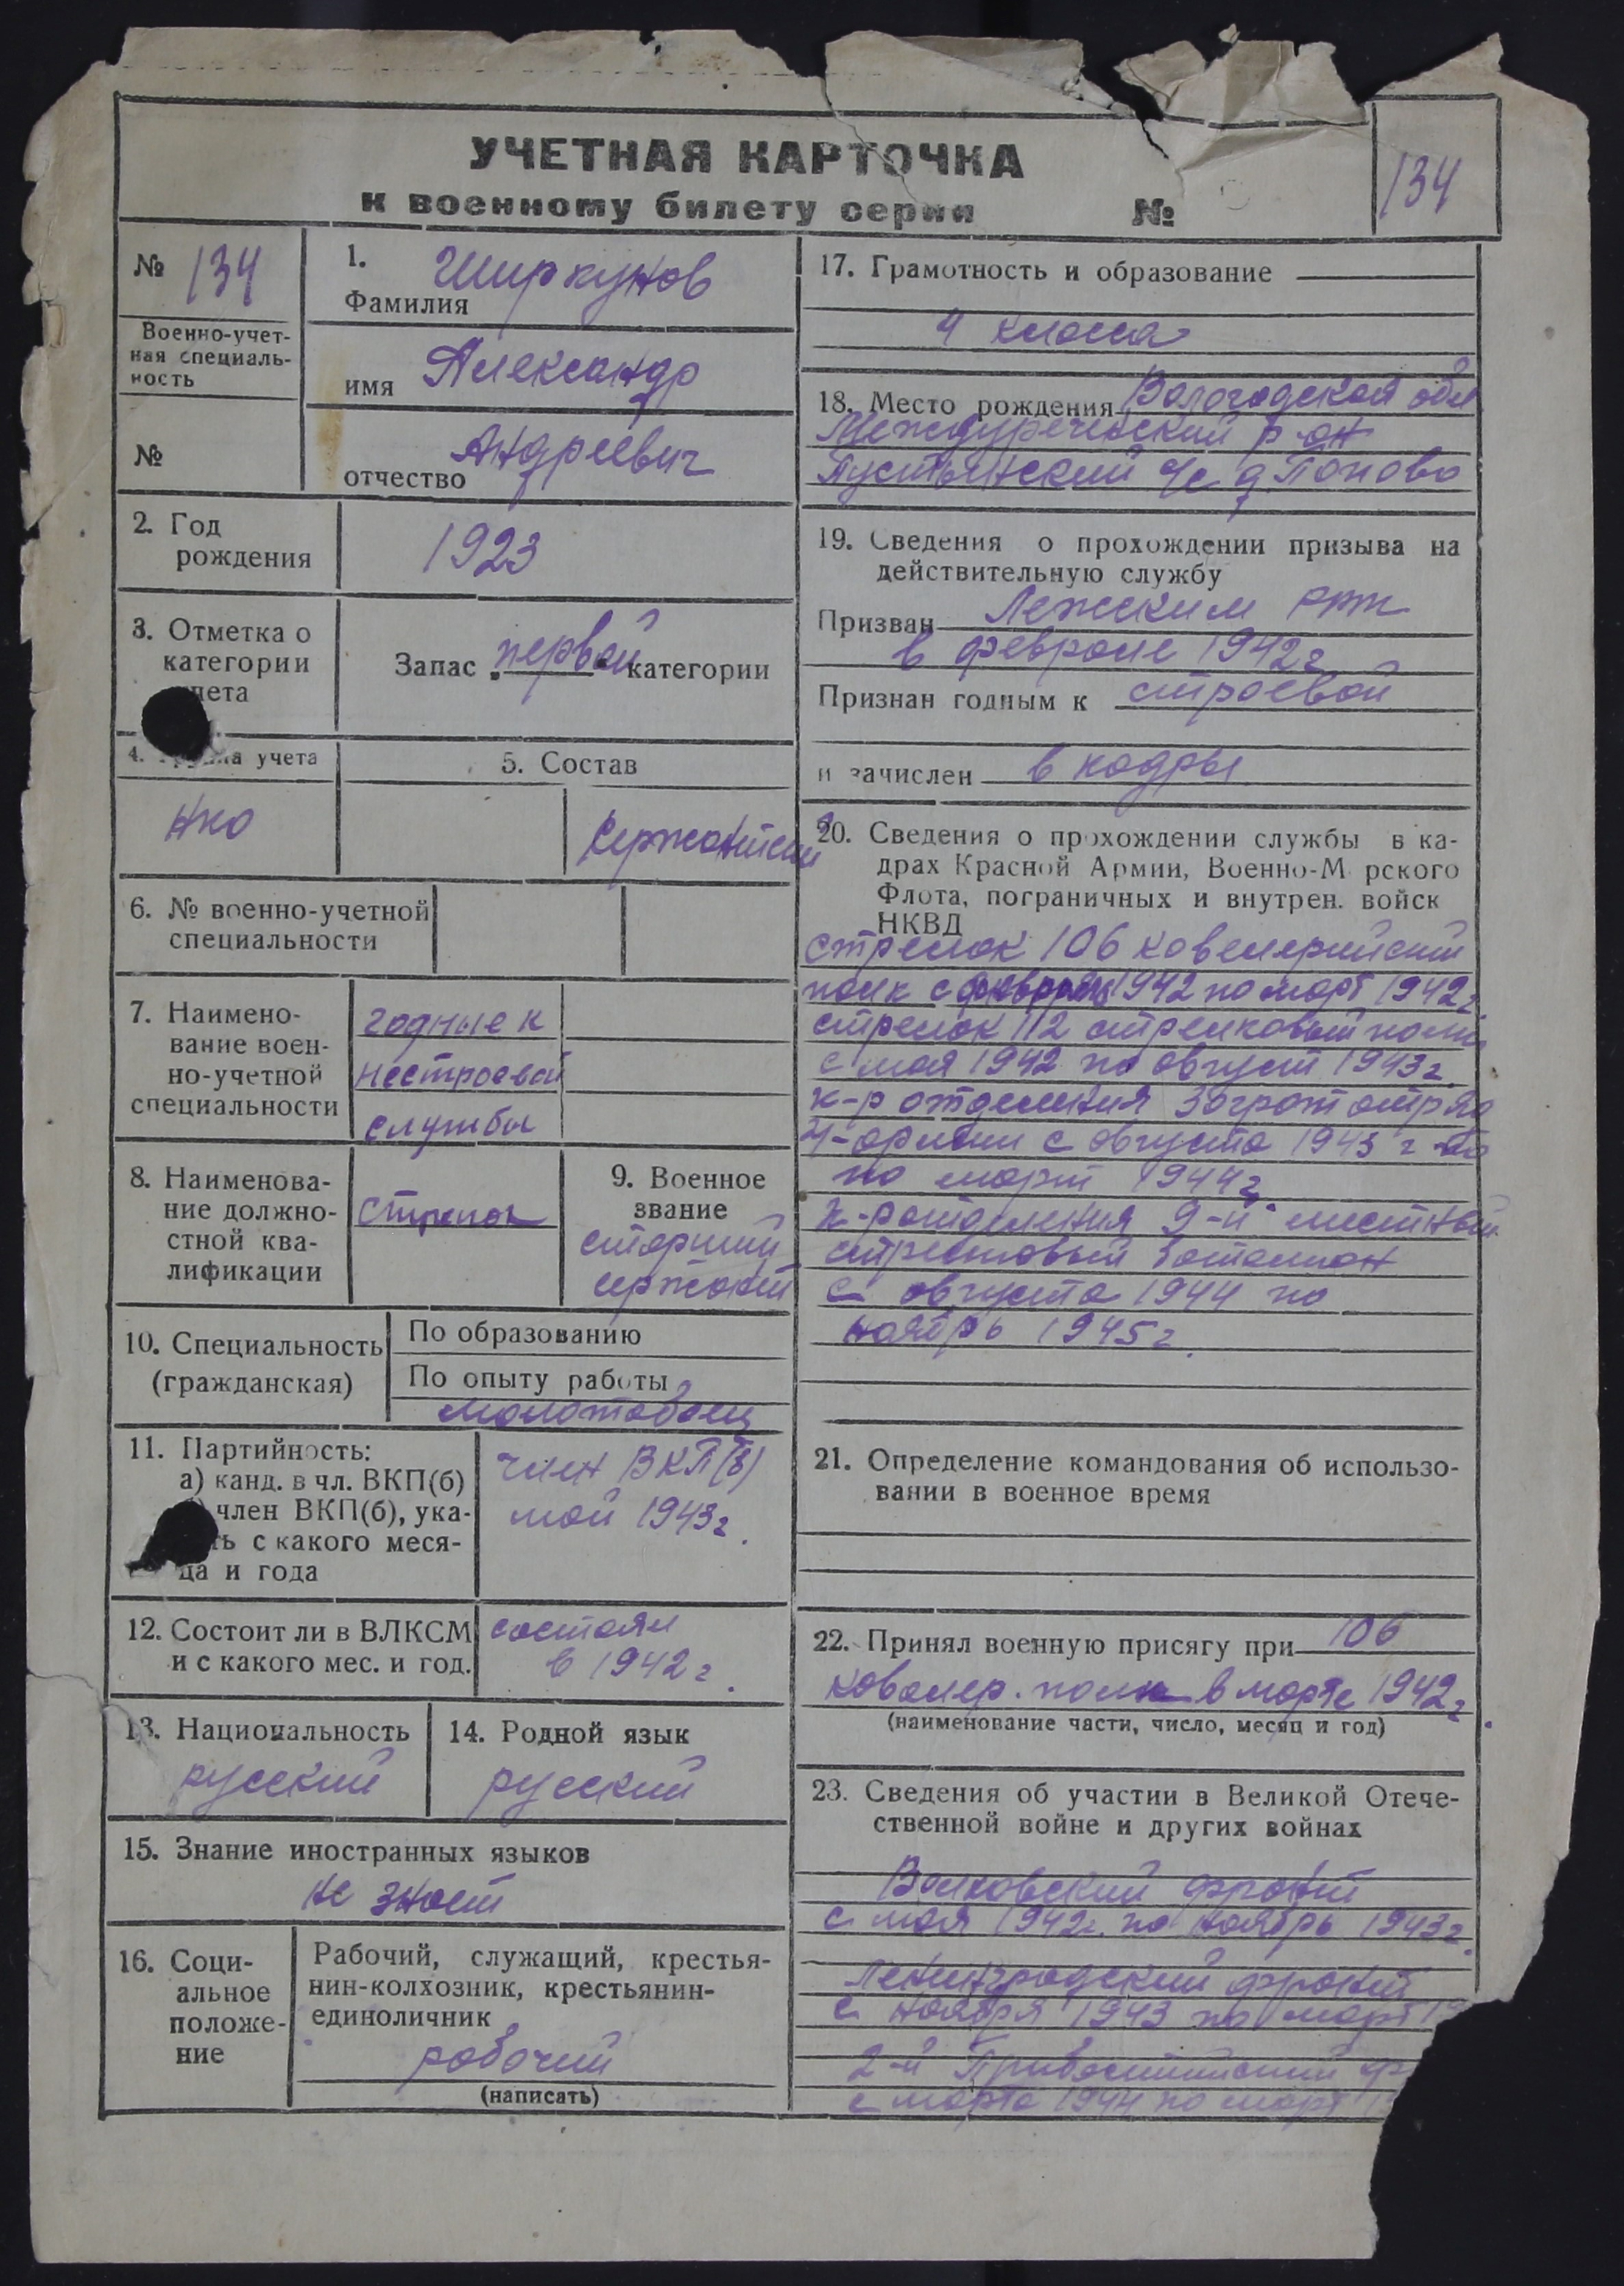 УЧЕТНАЯ КАРТОЧКА
к военному билету серии №
134
№ 134
Военно-учет-
ная специаль-
ность
№
1. Ширкунов
Фамилия
имя Александр
отчество Андреевич
2. Год
рождения
1923
3. Отметка о
категории
Запас первой категории
4. учета
5. Состав
НКО
Сержантский
6. № военно-учетной
специальности
7. Наимено-
вание воен-
но-учетной
специальности
годные к
нестроевой
службы
8. Наименова-
ние должно-
стной ква-
лификации
стрелок
9. Военное
звание
старший
сержант
10. Специальность
(гражданская)
По образованию
По опыту работы
молотобоец
11. Партийность:
а) канд. в чл. ВКП(б)
член ВКП(б), ука-
с какого меся-
ца и года
член ВКП(б)
май 1943г.
12. Состоит ли в ВЛКСМ
и с какого мес. и год.
состоял
в 1942г.
13. Национальность
русский
14. Родной язык
русский
15. Знание иностранных языков
не знает
16. Соци-
альное
положе-
ние
Рабочий, служащий, крестья-
нин-колхозник, крестьянин-
единоличник
рабочий
(написать)
17. Грамотность и образование
4 класса
18. Место рождения Вологодская обл
Междуреченский р-он
Пустынский с/с д Попово
19. Сведения о прохождении призыва на
действительную службу
Призван Лежским
в феврале 1942г
Признан годным к строевой
и зачислен в кадры
20. Сведения о прохождении службы в ка-
драх Красной Армии, Военно-М рского
Флота, пограничных и внутрен. войск
НКВД
стрелок 106 кавелерийский
полк с февраля 1942 по март 1942г
стрелок 112 стрелковый полк
с мая 1942 по август 1943г.
к-р отделения Заградотряд
4-армии с августа 1943 г
по март 1944г
к-р отделения 9-й местный
стрелковый батальон
с августа 1944 по
ноябрь 1945г.
21. Определение командования об использо-
вании в военное время
22. Принял военную присягу при 106
ковалер. полк в марте 1942г.
(наименование части, число, месяц и год)
23. Сведения об участии в Великой Отече-
ственной войне и других войнах
Волховский фронт
с мая 1942г. по ноябрь 1943г.
Ленинградский фронт
с ноября 1943 по март 19
2-й Прибалтийский ф
с марта 1944 по март 1